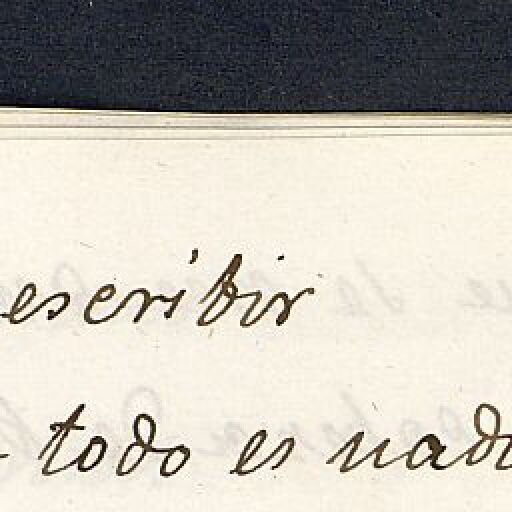 escribir
todo es nada